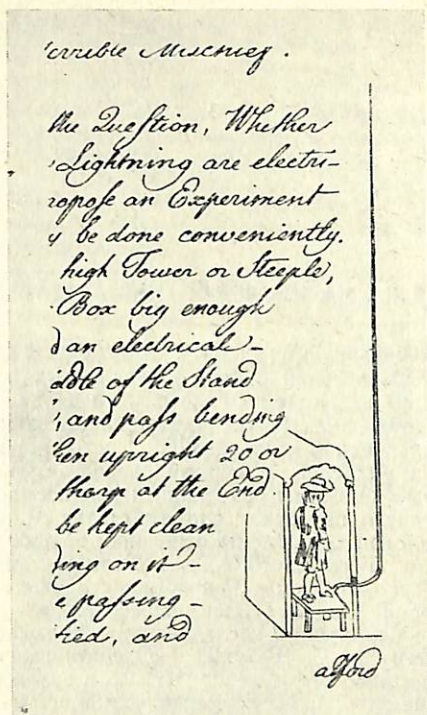 'errible Mischief.
the Question, Whether
Lightning are electri-
ropose an Experiment
y be done conveniently.
high Tower or Steeple,
Box big enough
d an electrical-
iddle of the Stand
, and pass bending
hen upright 20 or
sharp at the End.
be kept clean
ding on it-
e passing-
ified, and
afford